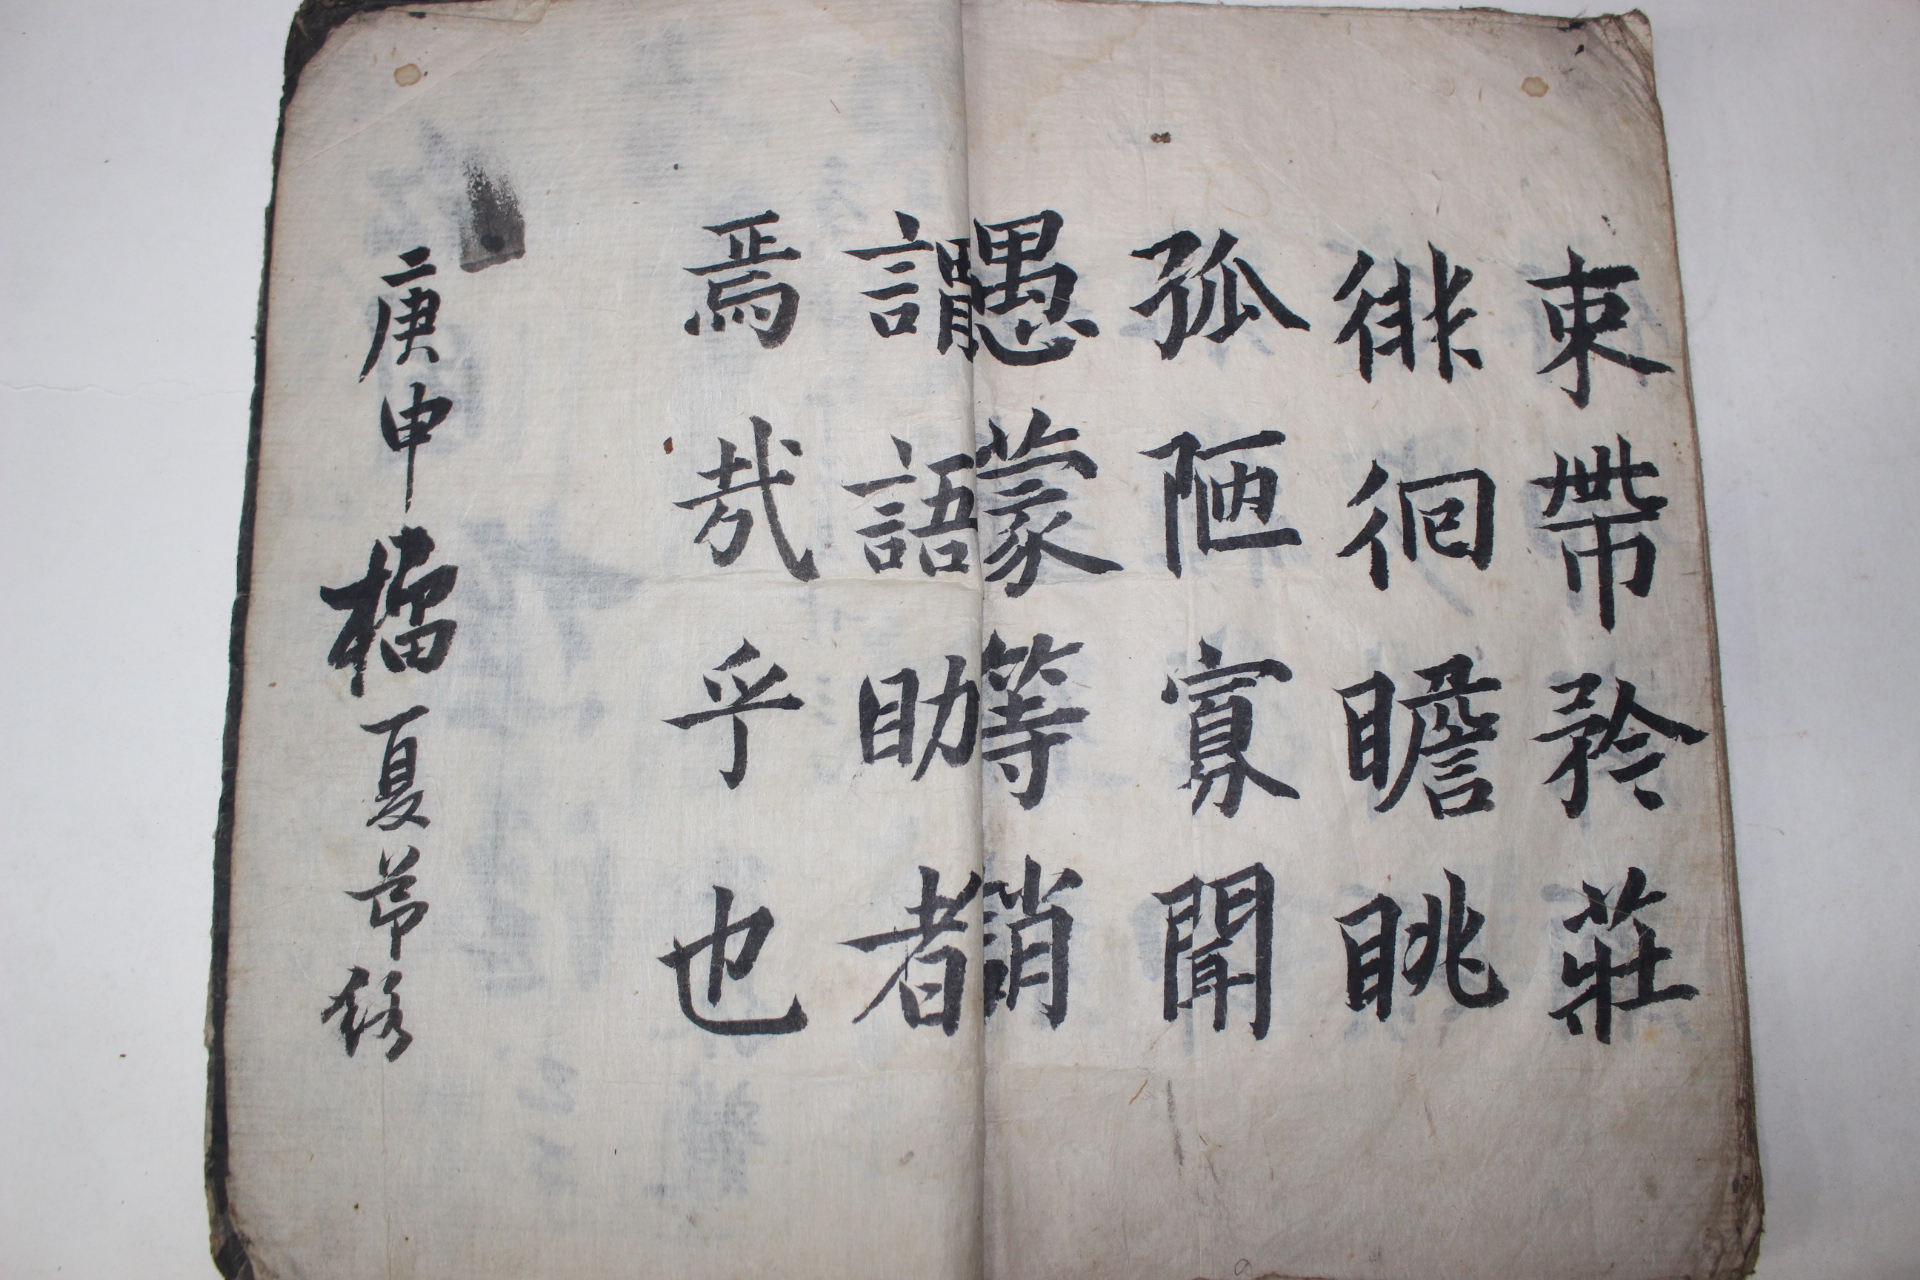 束帶矜莊
徘徊瞻眺
孤陋寡聞
愚蒙等誚
謂語助者
焉哉乎也
庚申榴夏節